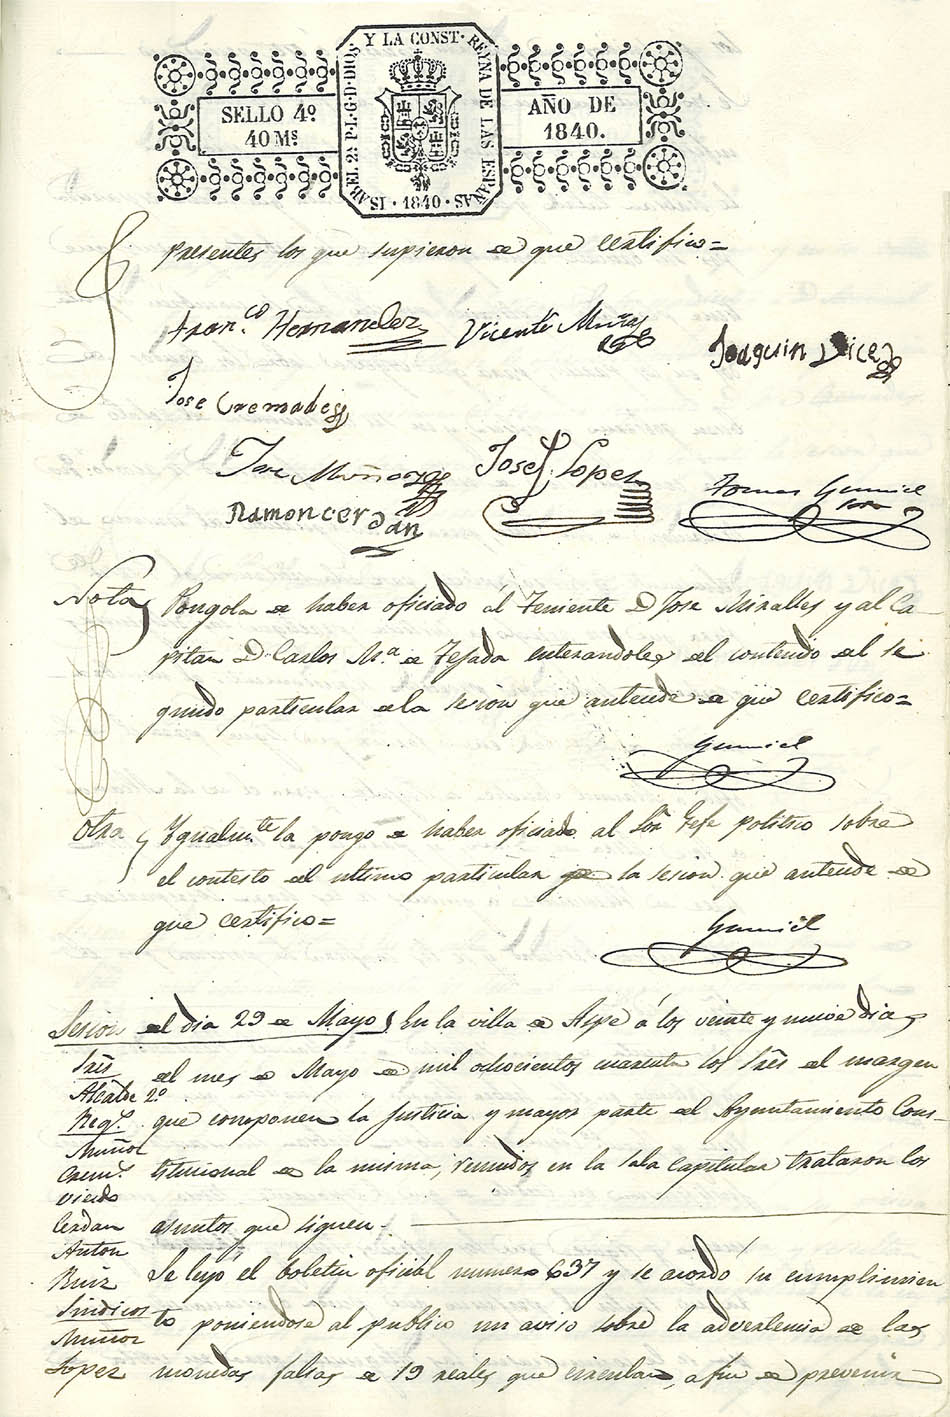 Y LA CONST. REYNA DE LAS ESPAÑAS
ISABEL 2ª P.L.G.D.DIOS
1840
SELLO 4º
40 Ms
AÑO DE
1840.
presentes los que supieron de que certifico=
Franco Hernandez
Vicente Muñoz
Joaquin Vicedo
Jose Cremades
Jose Muñoz
Jose Lopez
Tomas Gumiel
Ramon cerdan
Nota Pongola de haber oficiado al Teniente D Jose Miralles y al Ca-
pitan D. Carlos Mª de Tejada enterandoles del contenido del se
gundo particular de la sesion que antecede de que certifico=
Gumiel
Otra Ygualmte la pongo de haber oficiado al Sor Gefe politico sobre
el contesto del ultimo particular de la sesion que antecede de
que certifico=
Gumiel
Sesion del dia 29 de Mayo En la villa de Aspe á los veinte y nueve dias
Sres del mes de Mayo de mil ochocientos cuarenta los Sres del margen
Alcalde 2º
Regs. que componen la Justicia y mayor parte del Ayuntamiento Cons-
Muñoz
Crems. titucional de la misma, reunidos en la sala capitular trataron los
Vicedo
Cerdan asuntos que siguen.
Anton
Ruiz Se leyó el boletin oficial numero 637 y se acordó su cumplimien
Sindicos to poniendose al publico un aviso sobre la advertencia de las
Muñoz
Lopez monedas falsas de 19 reales que circulan, a fin de prevenir